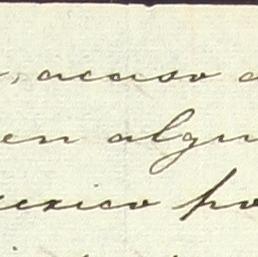 acaso
en algu
exico po